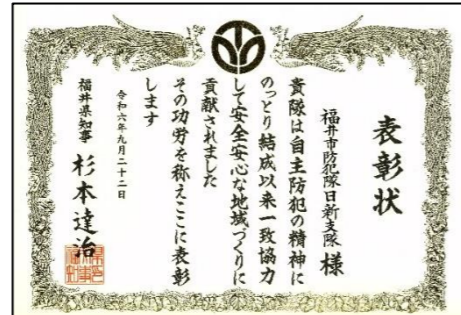 表彰状
福井市防犯隊日新支隊 様
貴隊は自主防犯の精神に
のっとり結成以来一致協力
して安全安心な地域づくりに
貢献されました
その功労を称えここに表彰
します
令和六年九月二十二日
福井県知事 杉本達治